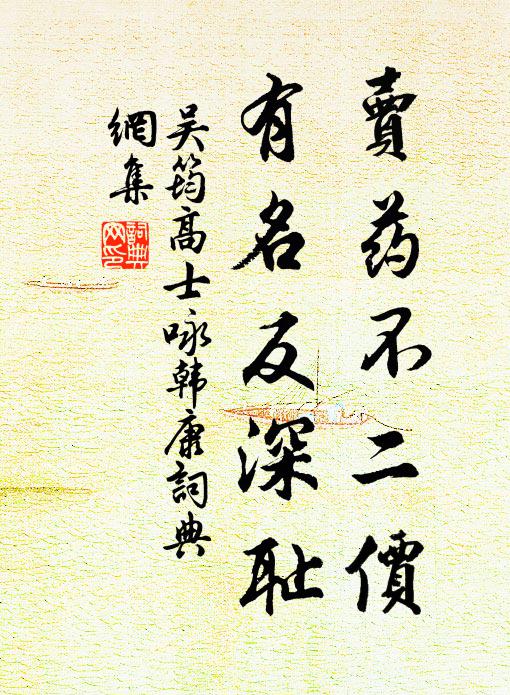 賣药不二價
有名反深耻
吴筠高士咏韩康詞典
網集
詞典
网印